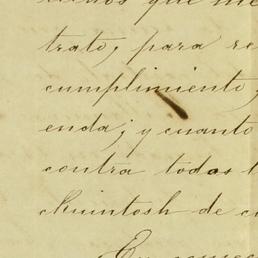 que me
trato, para re
cumplimiento,
enda; y cuanto
contra todos l
ckuintosh de c
En